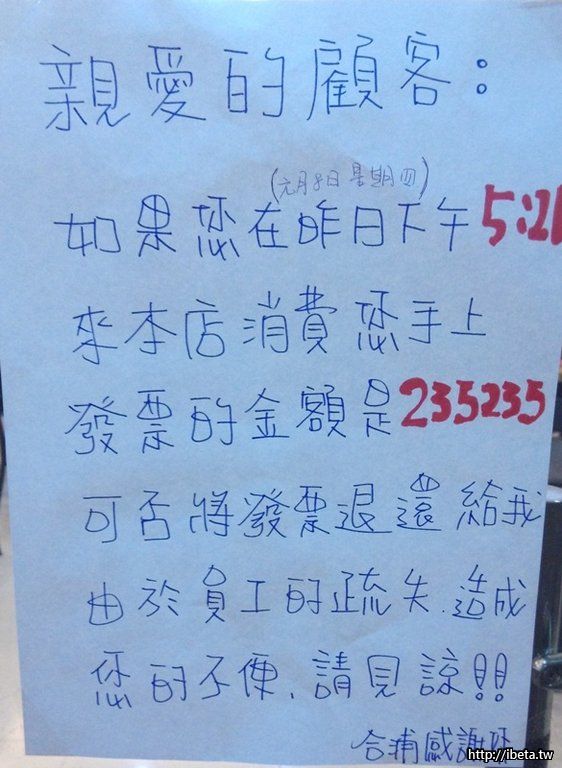 親愛的顧客:
(元月8日星期四)
如果您在昨日下午5:21
來本店消費您手上
發票的金額是235235
可否將發票退還給我
由於員工的疏失.造成
您的不便、請見諒!!
合浦感謝
http://ibeta.tw